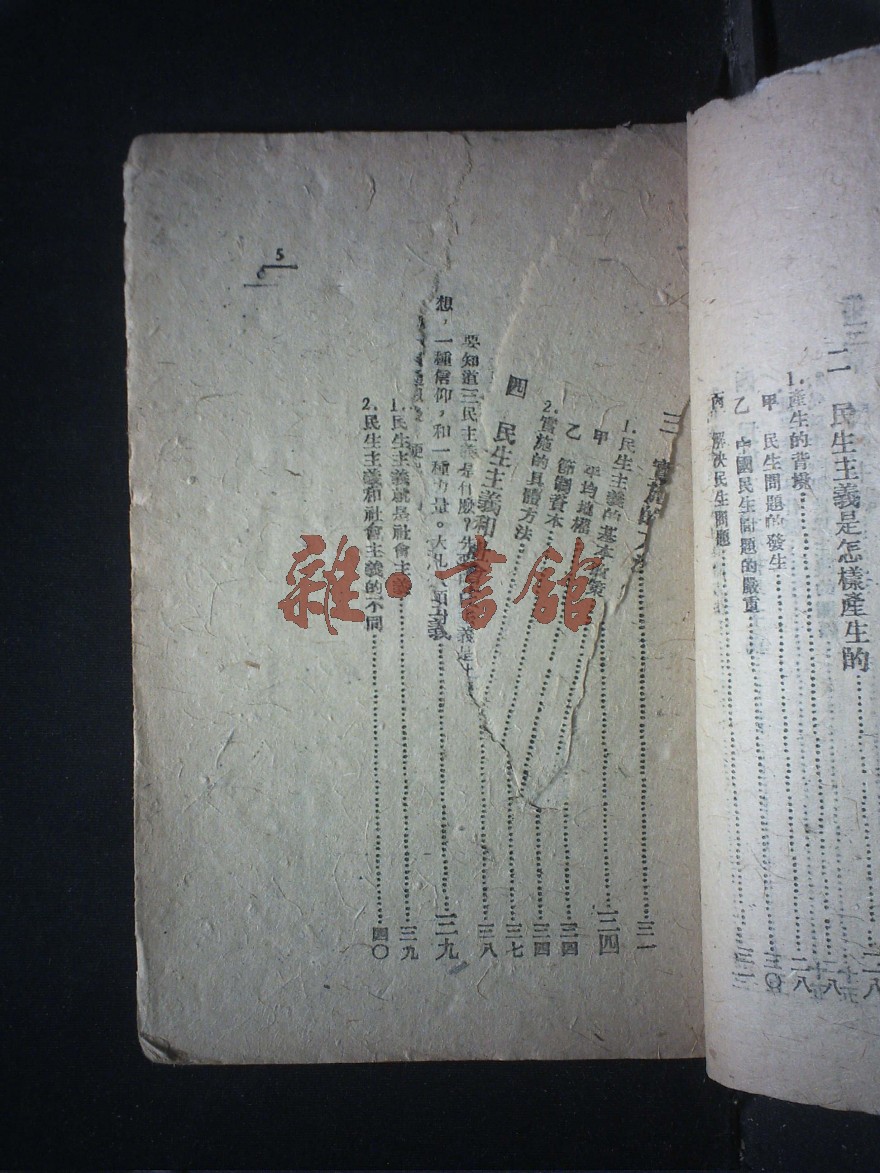 二 民生主義是怎樣產生的……二八
1.產生的背境……二八
甲 民生問題的發生……三〇
乙 中國民生問題的嚴重
丙 解決民生問題……三一
三 實施的
1.民生主義的基本政策
甲 平均地權
乙 節制資本
2.實施的具體方法
四 民生主義和社
要知道三民主義是什麼?先要
想,一種信仰,和一種力量。大凡
1.民生主義就是社會主義……三九
2.民生主義和社會主義的不同……四〇
三一
三四
三四
三四
三七
三八
三九
5
6
雜·書館